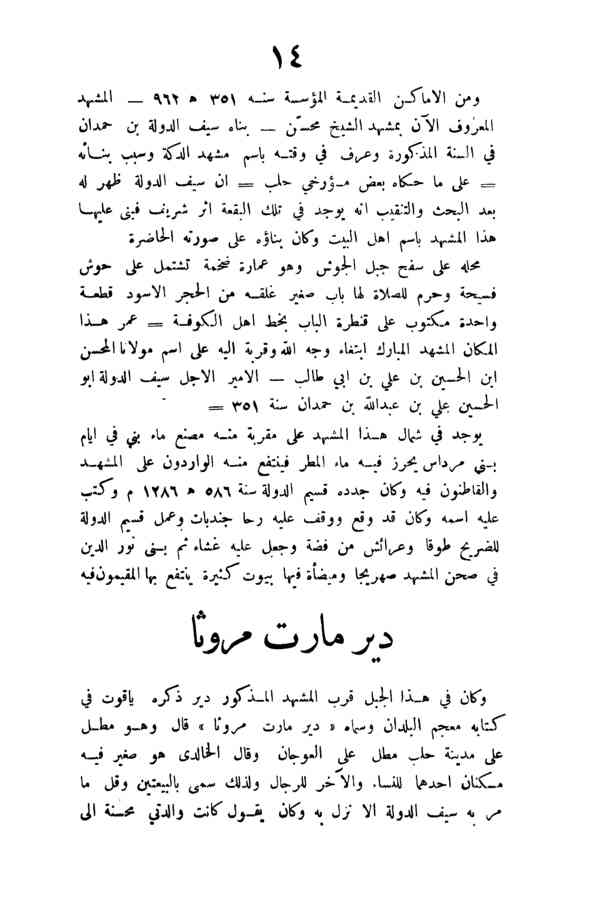 ١٤
ومن الاماكن القديمة المؤسسة سنه ٣٥١ ه ٩٦٢ — المشهد
المعروف الآن بمشهد الشيخ محسّن — بناه سيف الدولة بن حمدان
في السنة المذكورة وعرف في وقته باسم مشهد الدكة وسبب بنائه
= على ما حكاه بعض مؤرخي حلب = ان سيف الدولة ظهر له
بعد البحث والتنقيب انه يوجد في تلك البقعة اثر شريف فبنى عليها
هذا المشهد باسم اهل البيت وكان بناؤه على صورته الحاضرة
محله على سفح جبل الجوش وهو عمارة ضخمة تشتمل على حوش
فسيحة وحرم للصلاة لها باب صغير غلقه من الحجر الاسود قطعة
واحدة مكتوب على قنطرة الباب بخط اهل الكوفة = عمر هذا
المكان المشهد المبارك ابتغاء وجه الله وقربة اليه على اسم مولانا المحسن
ابن الحسين بن علي بن ابي طالب — الامير الاجل سيف الدولة ابو
الحسين علي بن عبدالله بن حمدان سنة ٣٥١ =
يوجد في شمال هذا المشهد على مقربة منه مصنع ماء بني في ايام
بني مرداس يحرز فيه ماء المطر فينتفع منه الواردون على المشهد
والقاطنون فيه وكان جدده قسيم الدولة سنة ٥٨٦ ه ١٢٨٦ م وكتب
عليه اسمه وكان قد وقع ووقف عليه رحا جندبات وعمل قسيم الدولة
للضريح طوقا وعرائش من فضة وجعل عليه غشاء ثم بنى نور الدين
في صحن المشهد صهريجا وميضأة فيها بيوت كثيرة ينتفع بها المقيمون فيه
دير مارت مروثا
وكان في هذا الجبل قرب المشهد المذكور دير ذكره ياقوت في
كتابه معجم البلدان وسماه « دير مارت مروثا » قال وهو مطل
على مدينة حلب مطل على العوجان وقال الخالدى هو صغير فيه
مسكنان احدهما للنساء والآخر للرجال ولذلك سمى بالبيعتين وقل ما
مر به سيف الدولة الا نزل به وكان يقول كانت والدتي محسنة الى